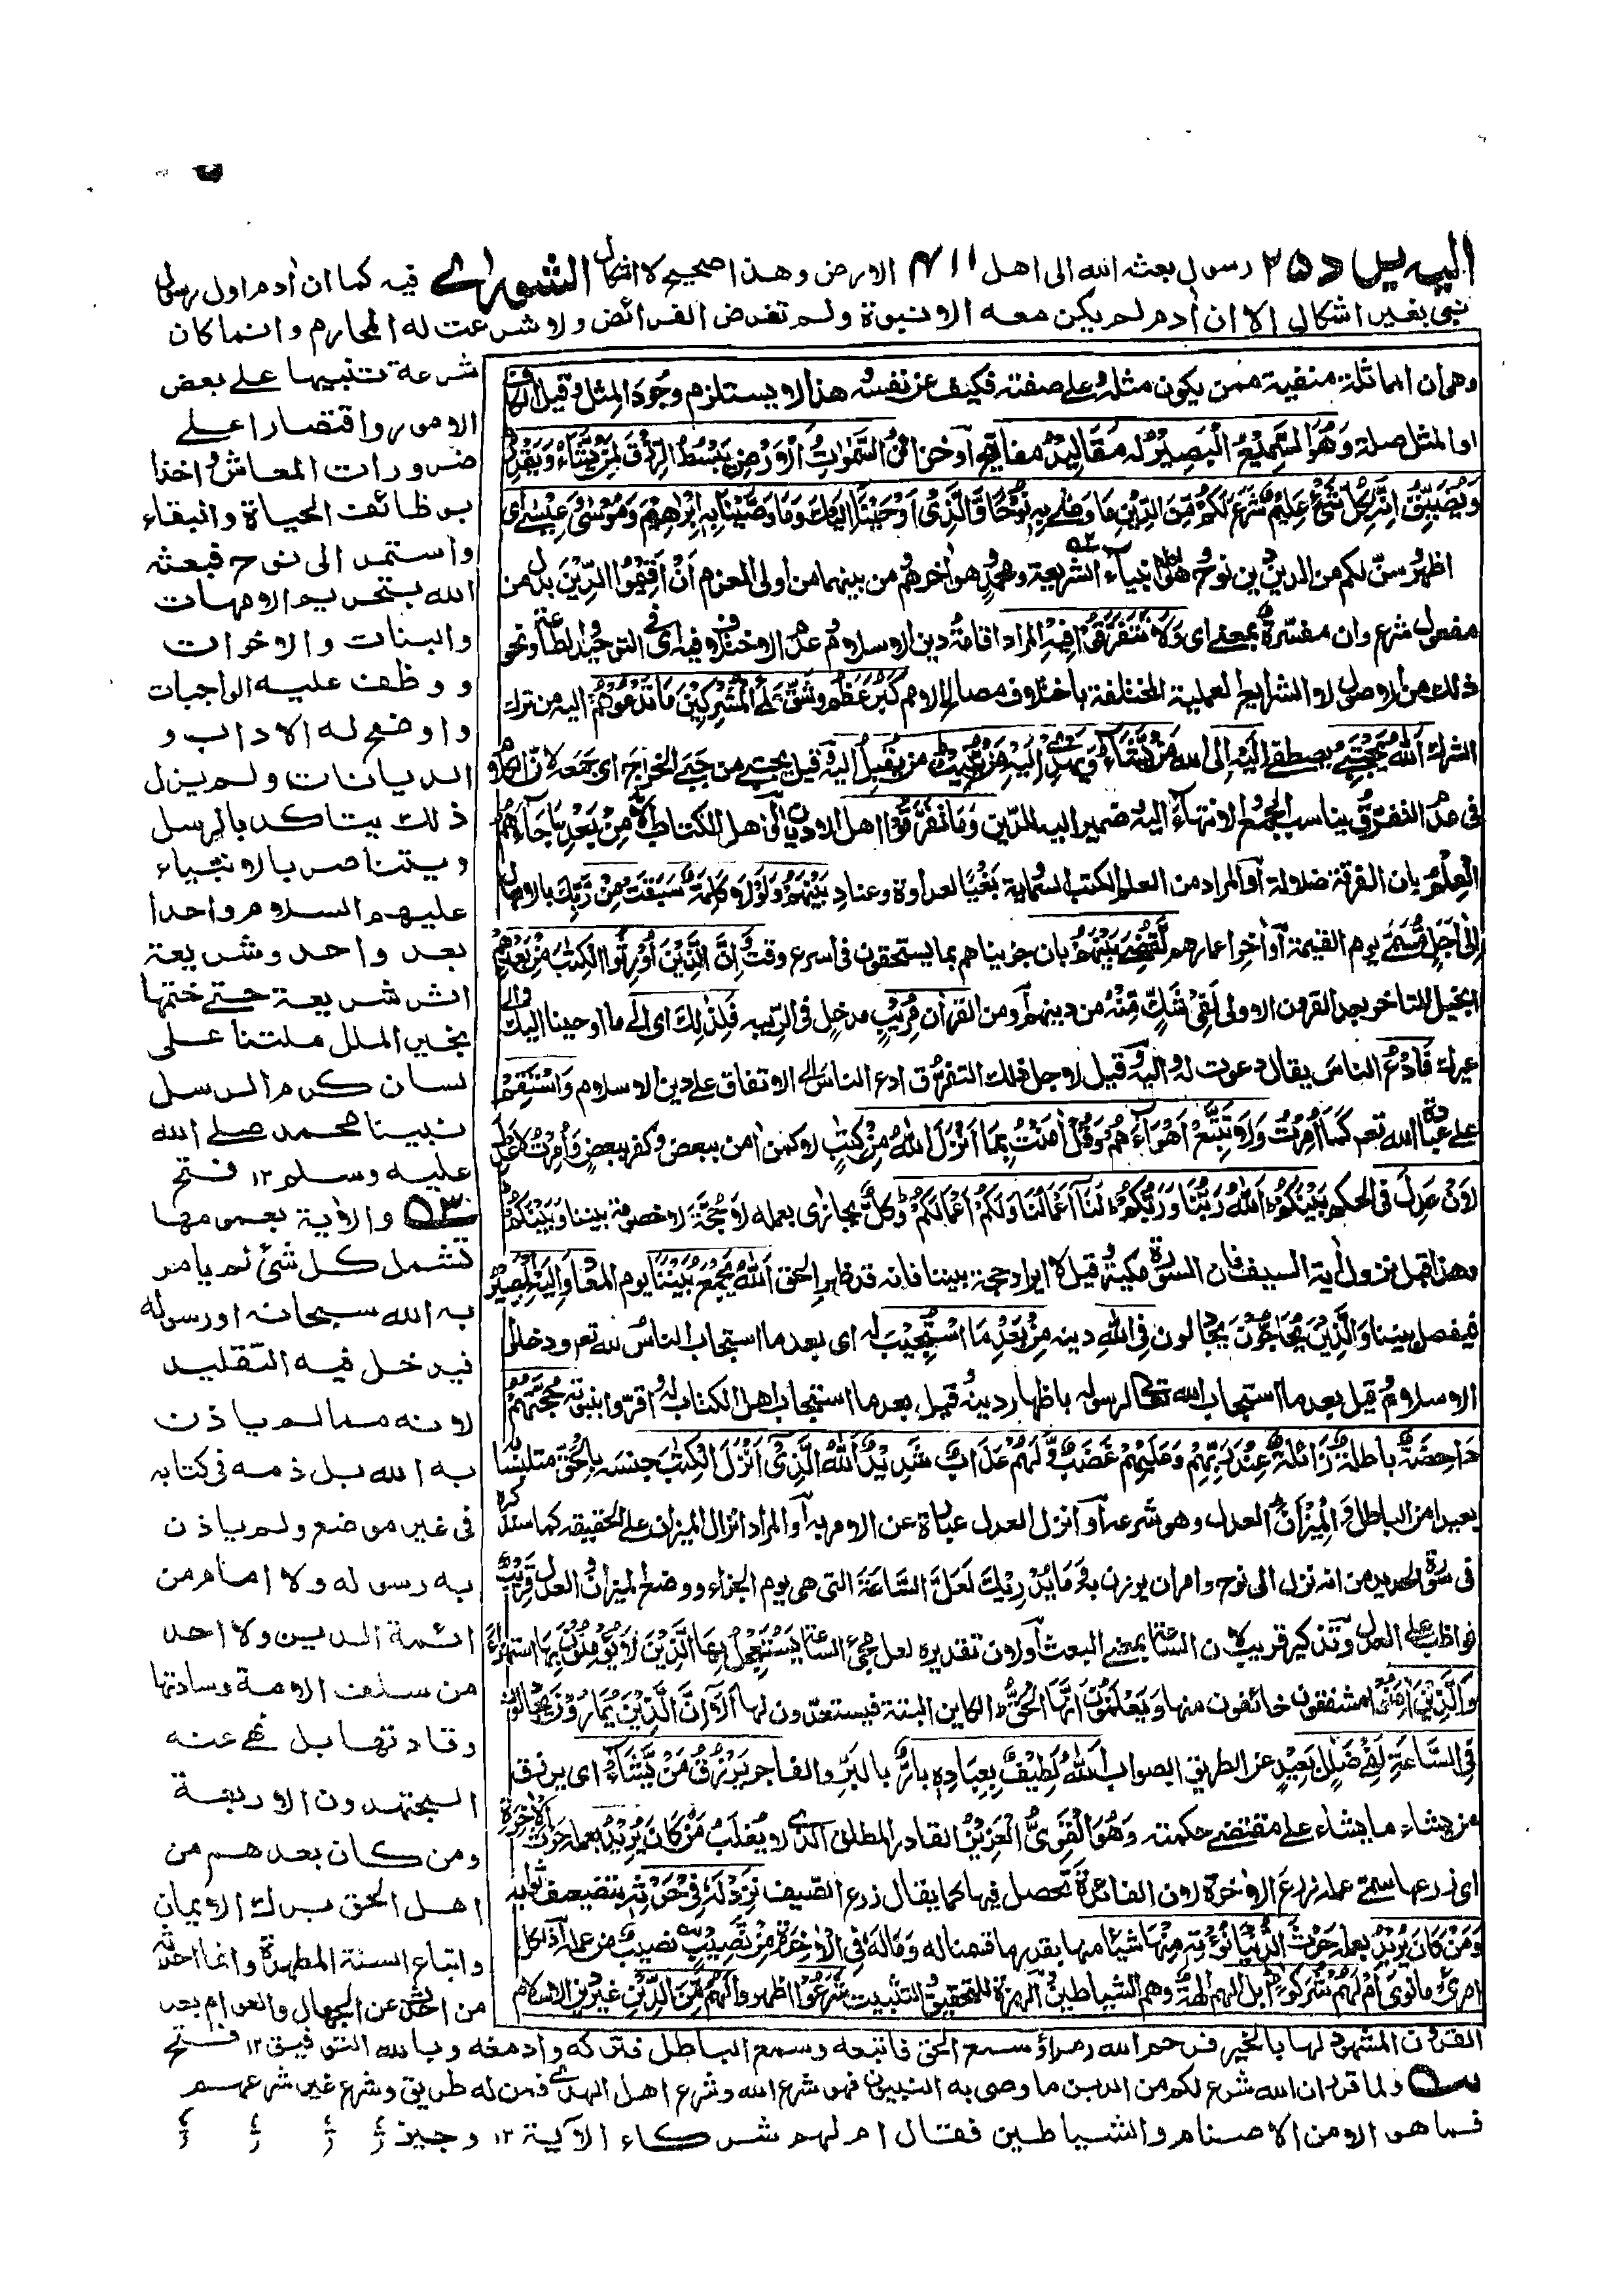 اليه يرد ٢٥ رسول بعثه الله الى اهل ٤١١ الارض وهذا صحيح لا اشكال الشورى فيه كما ان آدم اول رسول
نبي بغير اشكال الا ان آدم لم يكن معه الا نبوة ولم تفرض الفرائض ولا شرعت له المحارم وانما كان
وهو ان المماثلة منفية ممن يكون مثله وعلى صفته فكيف عن نفسه وهذا لا يستلزم وجود المثل وقيل الكاف
او المثل صلة وَهُوَ السَّمِيْعُ الْبَصِيْرُ لَهٗ مَقَالِيْدُ مفاتيح او خزائن السَّمٰوٰتِ وَالْاَرْضِ يَبْسُطُ الرِّزْقَ لِمَنْ يَّشَآءُ وَيَقْدِرُ
ويضيق اِنَّهٗ بِكُلِّ شَيْءٍ عَلِيْمٌ شَرَعَ لَكُمْ مِّنَ الدِّيْنِ مَا وَصّٰى بِهٖ نُوْحًا وَّالَّذِيْٓ اَوْحَيْنَآ اِلَيْكَ وَمَا وَصَّيْنَا بِهٖٓ اِبْرٰهِيْمَ وَمُوْسٰى وَعِيْسٰى اى
اظهر وسن لكم من الدين دين نوح وهو اول انبياء الشريعة ومحمد وهو آخرهم ومن بينهما من اولى العزم اَنْ اَقِيْمُوا الدِّيْنَ بدل من
مفعول شرع وان مفسرة بمعنى اى وَلَا تَتَفَرَّقُوْا فِيْهِ المراد اقامة دين الاسلام وعدم الاختلاف فيه اى فى التوحيد والطاعة ونحو
ذلك من الاصول لا الشرايع العملية المختلفة باختلاف مصالح الامم كَبُرَ عظم وشق عَلَى الْمُشْرِكِيْنَ مَا تَدْعُوْهُمْ اِلَيْهِ من ترك
الشرك اَللّٰهُ يَجْتَبِيْٓ يصطفى اِلَيْهِ الى الله مَنْ يَّشَآءُ وَيَهْدِيْٓ اِلَيْهِ مَنْ يُّنِيْبُ من يقبل اليه وقيل يجتبى من جبى الخراج اى جمعه لان الكلام
فى عدم التفرق يناسب الجمع والانتهاء اليه وضمير اليه للدين وَمَا تَفَرَّقُوْٓا اهل الاديان اى اهل الكتاب اِلَّا مِنْۢ بَعْدِ مَا جَآءَهُمُ
الْعِلْمُ بان الفرقة ضلالة او المراد من العلم الكتب السماوية بَغْيًا لعداوة وعناد بَيْنَهُمْ وَلَوْلَا كَلِمَةٌ سَبَقَتْ مِنْ رَّبِّكَ بالامهال
اِلٰٓى اَجَلٍ مُّسَمًّى يوم القيمة او آخر اعمارهم لَّقُضِيَ بَيْنَهُمْ بان جزيناهم بما يستحقون فى اسرع وقت وَاِنَّ الَّذِيْنَ اُوْرِثُوا الْكِتٰبَ مِنْۢ بَعْدِهِمْ
الجيل المتاخر بعد القرون الاولى لَفِيْ شَكٍّ مِّنْهُ من دينهم او من القرآن مُرِيْبٍ مدخل فى الريبة فَلِذٰلِكَ اى الى ما اوحينا اليك والى
غيرك فَادْعُ الناس يقال دعوت له واليه وقيل لاجل ذلك التفرق ادع الناس الى الاتفاق على دين الاسلام وَاسْتَقِمْ
على عبادة الله تعم كَمَآ اُمِرْتَ وَلَا تَتَّبِعْ اَهْوَآءَهُمْ وَقُلْ اٰمَنْتُ بِمَآ اَنْزَلَ اللّٰهُ مِنْ كِتٰبٍ لا كمن آمن ببعض وكفر ببعض وَاُمِرْتُ لِاَعْدِلَ
لان عدل فى الحكم بَيْنَكُمْ اَللّٰهُ رَبُّنَا وَرَبُّكُمْ لَنَآ اَعْمَالُنَا وَلَكُمْ اَعْمَالُكُمْ وكل يجازى بعمله لَا حُجَّةَ لا خصومة بَيْنَنَا وَبَيْنَكُمْ
وهذا قبل نزول آية السيف فان السورة مكية وقيل لا ايراد حجة بيننا فانه قد ظهر الحق اَللّٰهُ يَجْمَعُ بَيْنَنَا يوم المعاد وَاِلَيْهِ الْمَصِيْرُ
فيفصل بيننا وَالَّذِيْنَ يُحَآجُّوْنَ يجادلون فِى اللّٰهِ دينه مِنْۢ بَعْدِ مَا اسْتُجِيْبَ لَهٗ اى بعد ما استجاب الناس لله تعم ودخلوا
الاسلام وقيل بعد ما استجاب الله تعالى لرسوله باظهار دينه وقيل بعد ما استجاب اهل الكتاب له واقروا بنبوته حُجَّتُهُمْ
دَاحِضَةٌ باطلة زائلة عِنْدَ رَبِّهِمْ وَعَلَيْهِمْ غَضَبٌ وَّلَهُمْ عَذَابٌ شَدِيْدٌ اَللّٰهُ الَّذِيْٓ اَنْزَلَ الْكِتٰبَ جنسه بِالْحَقِّ متلبسا به
بعيدا من الباطل وَالْمِيْزَانَ العدل وهو شرعه او انزل العدل عبارة عن الامر به او المراد انزال الميزان على الحقيقة كما سنذكره
فى سورة الحديد من انه نزل الى نوح وامر ان يوزن به وَمَا يُدْرِيْكَ لَعَلَّ السَّاعَةَ التى هى يوم الجزاء ووضع الميزان والعدل قَرِيْبٌ
فواظب على العدل وتذكير قريب لان الساعة بمعنى البعث او لان تقديره لعل مجئ الساعة يَسْتَعْجِلُ بِهَا الَّذِيْنَ لَا يُؤْمِنُوْنَ بِهَا استهزاء
وَالَّذِيْنَ اٰمَنُوْا مُشْفِقُوْنَ خائفون مِنْهَا وَيَعْلَمُوْنَ اَنَّهَا الْحَقُّ الكاين البتة فيستعدون لها اَلَآ اِنَّ الَّذِيْنَ يُمَارُوْنَ يجادلون
فِى السَّاعَةِ لَفِيْ ضَلٰلٍۢ بَعِيْدٍ عن الطريق الصواب اَللّٰهُ لَطِيْفٌۢ بِعِبَادِهٖ بار بالبر والفاجر يَرْزُقُ مَنْ يَّشَآءُ اى يرزق
من يشاء ما يشاء على مقتضى حكمته وَهُوَ الْقَوِيُّ الْعَزِيْزُ القادر المطلق الذى لا يغلب مَنْ كَانَ يُرِيْدُ بعمله حَرْثَ الْاٰخِرَةِ
اى زرعها سمى عمله زرع الآخرة لان الفائدة تحصل فيها كما يقال زرع الصيف نَزِدْ لَهٗ فِيْ حَرْثِهٖ بتضعيف ثوابه
وَمَنْ كَانَ يُرِيْدُ بعمله حَرْثَ الدُّنْيَا نُؤْتِهٖ مِنْهَا شيئا منها بقدر ما قسمنا له وَمَا لَهٗ فِى الْاٰخِرَةِ مِنْ نَّصِيْبٍ نصيب من عمله اذ لكل
امرئ ما نوى اَمْ لَهُمْ شُرَكٰٓؤُا بل الهم آلهة وهم الشياطين والهمزة للتحقيق والتثبيت شَرَعُوْا اظهروا لَهُمْ مِّنَ الدِّيْنِ غير دين الاسلام
شرعة تنبيها على بعض
الامور واقتصارا على
ضرورات المعاش واخذا
بوظائف الحياة والبقاء
واستمر الى نوح فبعثه
الله بتحريم الامهات
والبنات والاخوات
ووظف عليه الواجبات
واوضح له الاداب و
الديانات ولم يزل
ذلك يتاكد بالرسل
ويتناصر بالانبياء
عليهم السلام واحدا
بعد واحد وشريعة
اثر شريعة حتى ختمها
بخير الملل ملتنا على
لسان كرم الرسل
نبينا محمد صلى الله
عليه وسلم ١٢ فتح
٥٣ والآية بعمومها
تشمل كل شئ لم يامر
به الله سبحانه او رسوله
فيدخل فيه التقليد
لانه مما لم ياذن
به الله بل ذمه فى كتابه
فى غير موضع ولم ياذن
به رسوله ولا امام من
ائمة الدين ولا احد
من سلف الامة وسادتها
وقادتها بل نهى عنه
المجتهدون الاربعة
ومن كان بعدهم من
اهل الحق بركة الايمان
واتباع السنة المطهرة وانما احدثه
من احدث عن الجهال والعوام بعد
القرون المشهود لها بالخير فرحم الله امرأ سمع الحق فاتبعه وسمع الباطل فتركه وادمغه وبالله التوفيق ١٢ فتح
ولما قرر ان الله شرع لكم من الدين ما وصى به النبيون فهو شرع الله وشرع اهل الهدى فمن له طريق وشرع غير شرعهم
فما هو الا من الاصنام والشياطين فقال ام لهم شركاء الآية ١٢ وجيز